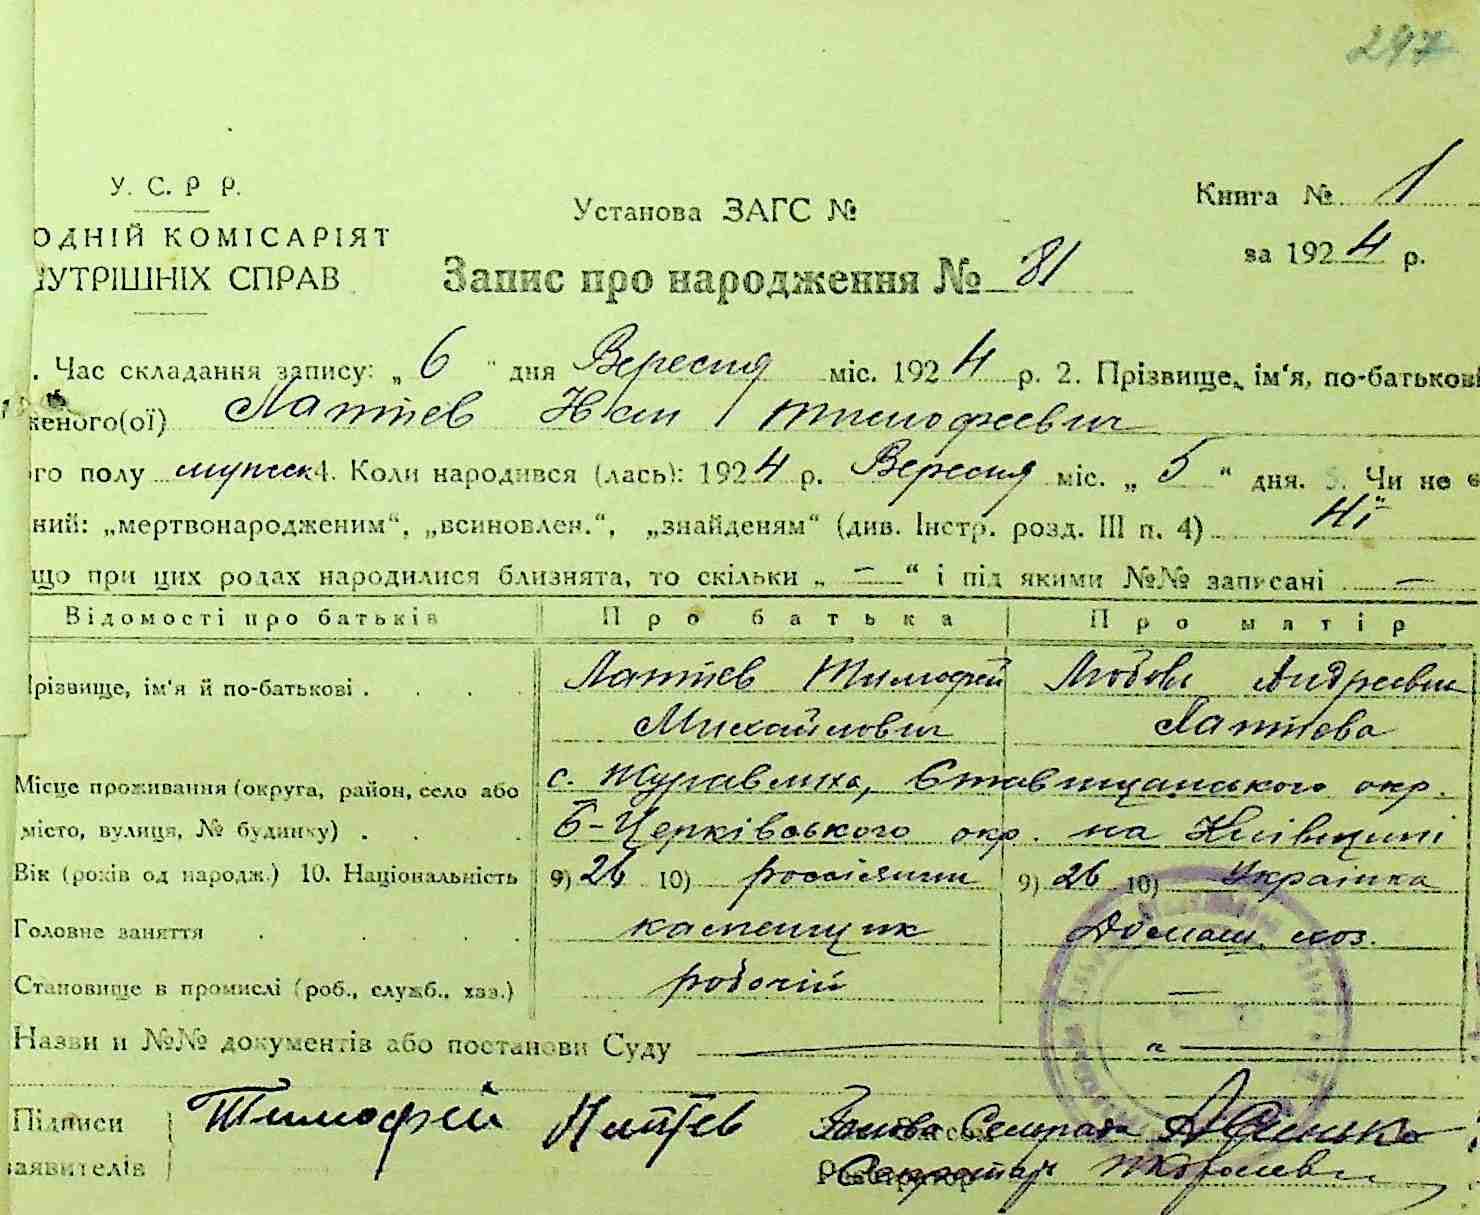 297
У. С. Р Р.
ОДНІЙ КОМІСАРІЯТ
НУТРІШНІХ СПРАВ
Установа ЗАГС №
Книга № 1
за 1924 р.
Запис про народження № 81
. Час складання запису: „ 6 " дня Вересня міс. 1924 р. 2. Прізвище, ім'я, по-батькові
женого(ої) Лаптєв Тимофеевич
го полу 4. Коли народився (лась): 1924 р. Вересня міс. „ 5 " дня. 5. Чи не є
ний: „мертвонародженим", „всиновлен.", „знайденям" (див. Інстр. розд. III п. 4) Ні
що при цих родах народилися близнята, то скільки „ — " і під якими №№ записані —
Відомості про батьків Про батька Про матір
Прізвище, ім'я й по-батькові . . . . Лаптєв Тимофей Любовь Андреевна
Михайлович Лаптєва
Місце проживання (округа, район, село або с. Журавлиха, Ставищанського окр.
місто, вулиця, № будинку) . . . Б-Церківського окр. на Київщині
Вік (років од народж.) 10. Національність 9) 26 10) 9) 26 10) Українка
Головне заняття . . . . . каменщик Домаш. хоз.
Становище в промислі (роб., служб., хаз.) робочій —
Назви и №№ документів або постанови Суду — " —
Підписи Тимофей Лаптєв Голова Сельрада
заявителів Секретарь